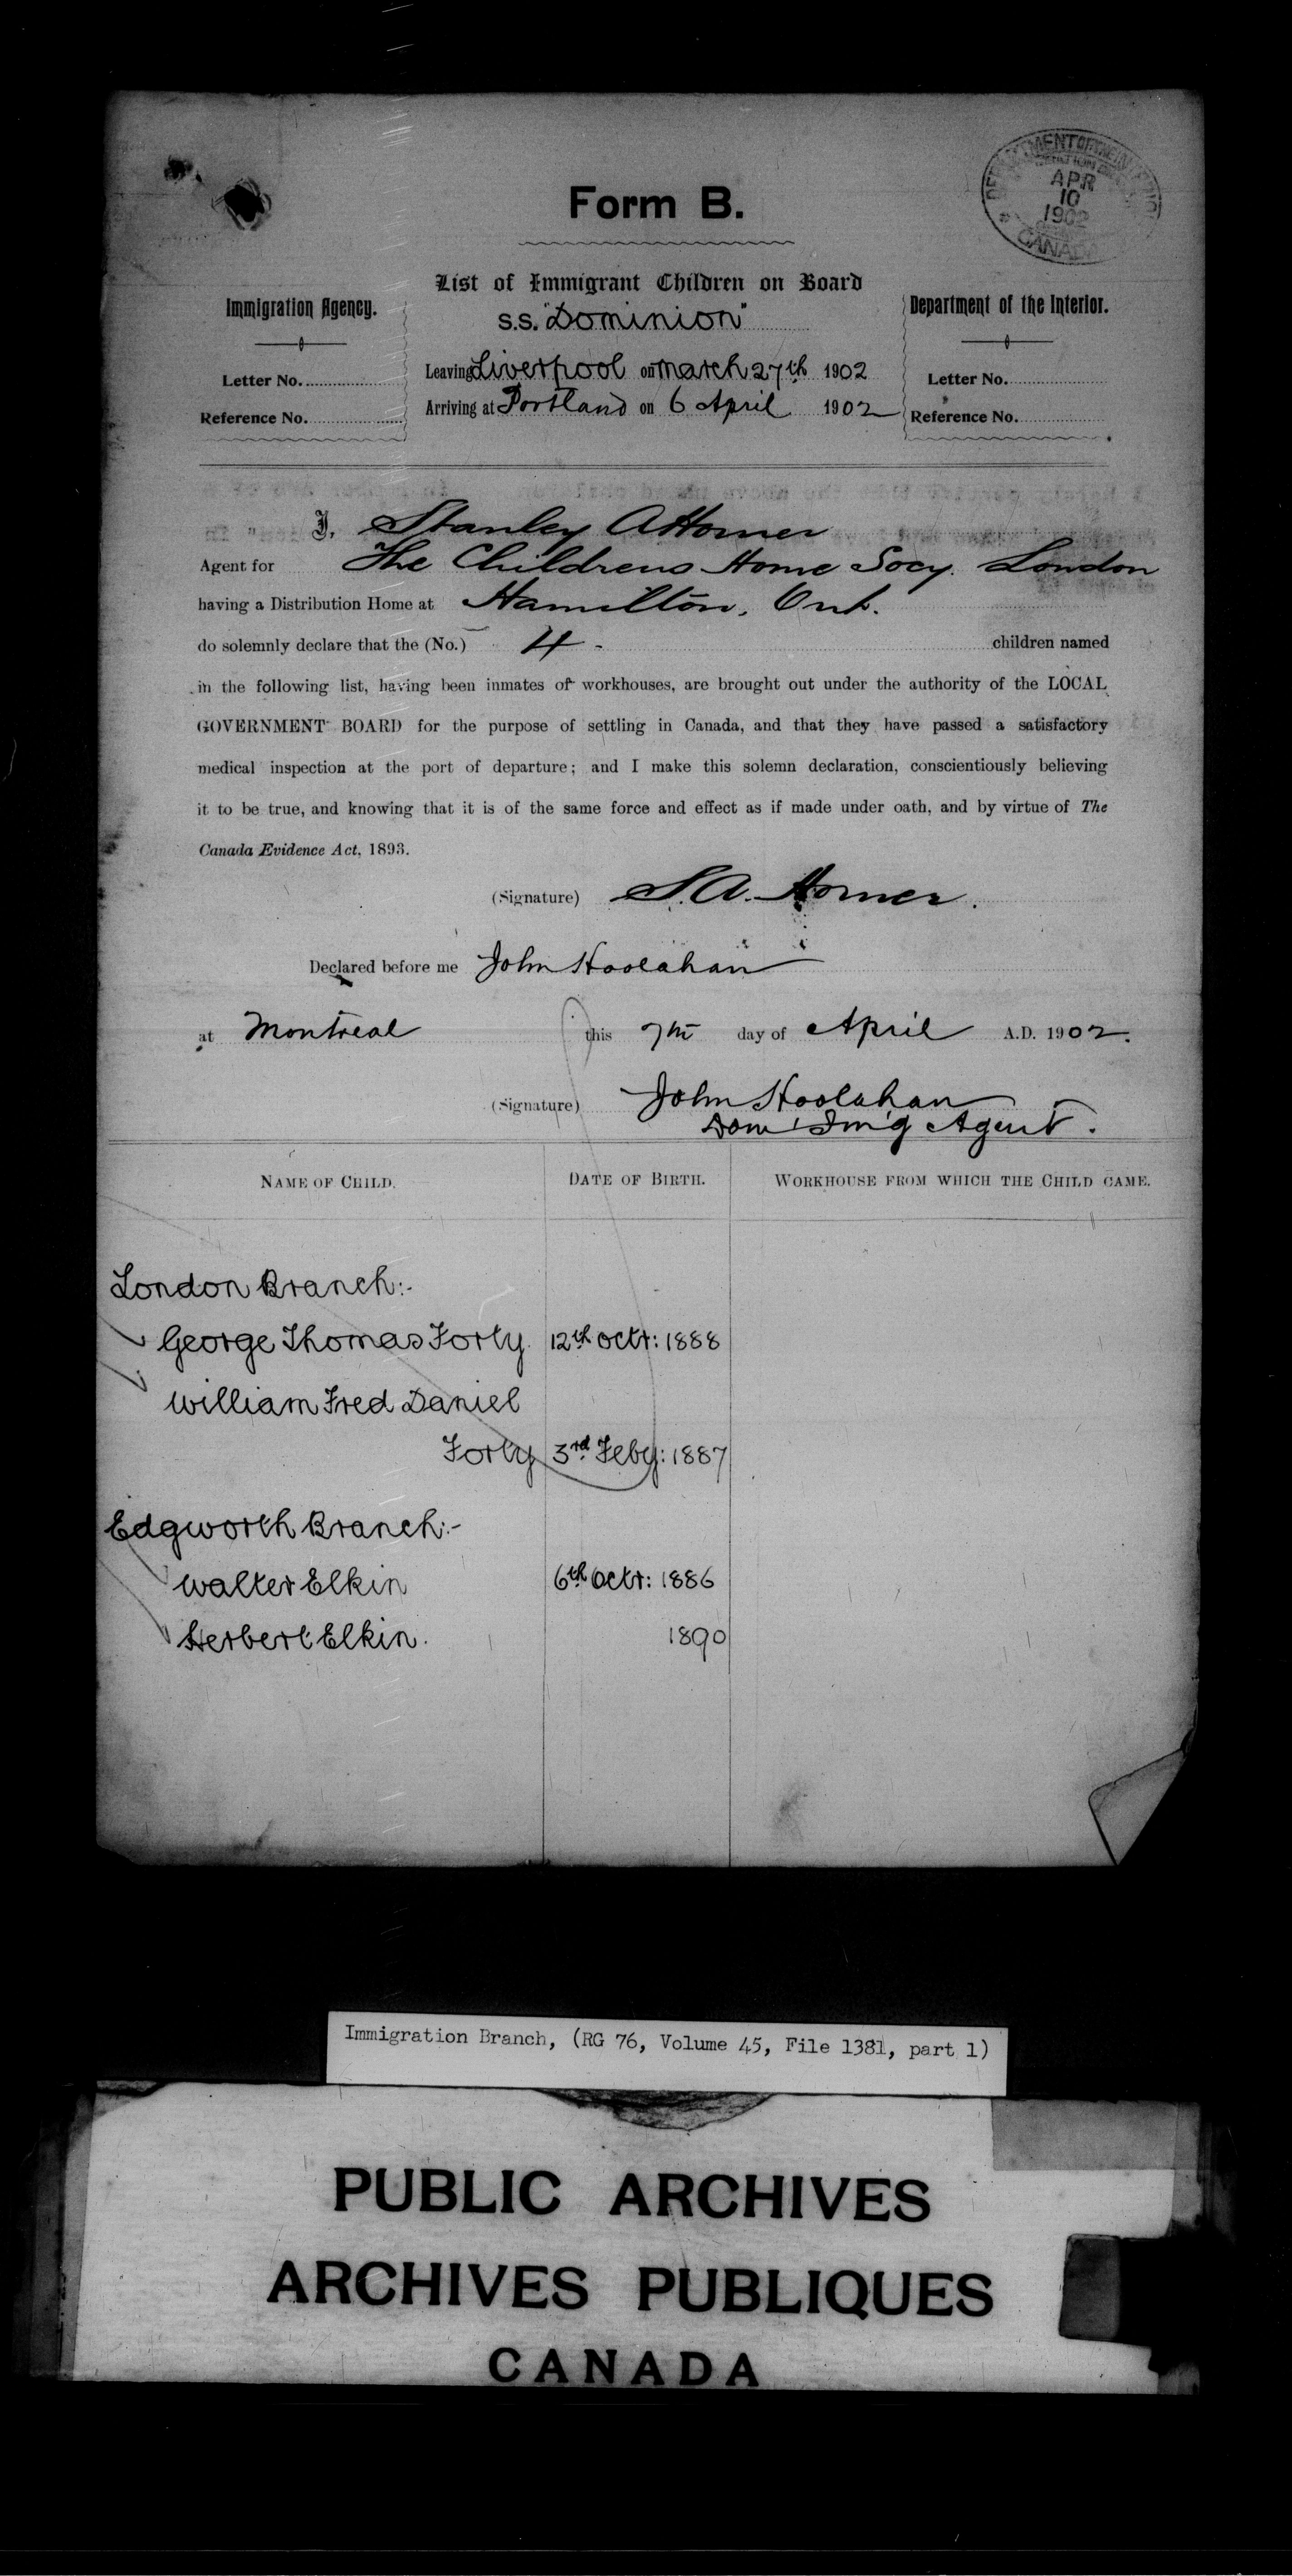 DEPARTMENT OF THE INTERIOR
APR
10
1902
CANADA
Form B.
List of Immigrant Children on Board
s.s. "Dominion"
Immigration Agency.
Department of the Interior.
Leaving Liverpool on March 27th 1902
Letter No.
Letter No.
Arriving at Portland on 6 April 1902
Reference No.
Reference No.
I, Stanley A Horner
Agent for The Childrens Home Socy. London
having a Distribution Home at Hamilton, Ont.
do solemnly declare that the (No.) 4 - children named
in the following list, having been inmates of workhouses, are brought out under the authority of the LOCAL
GOVERNMENT BOARD for the purpose of settling in Canada, and that they have passed a satisfactory
medical inspection at the port of departure; and I make this solemn declaration, conscientiously believing
it to be true, and knowing that it is of the same force and effect as if made under oath, and by virtue of The
Canada Evidence Act, 1893.
(Signature) S.A. Horner.
Declared before me John Hoolahan
at Montreal this 7th day of April A.D. 1902.
(Signature) John Hoolahan
Dom Im'g Agent.
NAME OF CHILD. DATE OF BIRTH. WORKHOUSE FROM WHICH THE CHILD CAME.
London Branch:-
George Thomas Forty. 12th Octr: 1888
William Fred Daniel
Forty 3rd Feby: 1887
Edgworth Branch:-
Walter Elkin 6th Octr: 1886
Herbert Elkin. 1890
Immigration Branch, (RG 76, Volume 45, File 1381, part 1)
PUBLIC ARCHIVES
ARCHIVES PUBLIQUES
CANADA